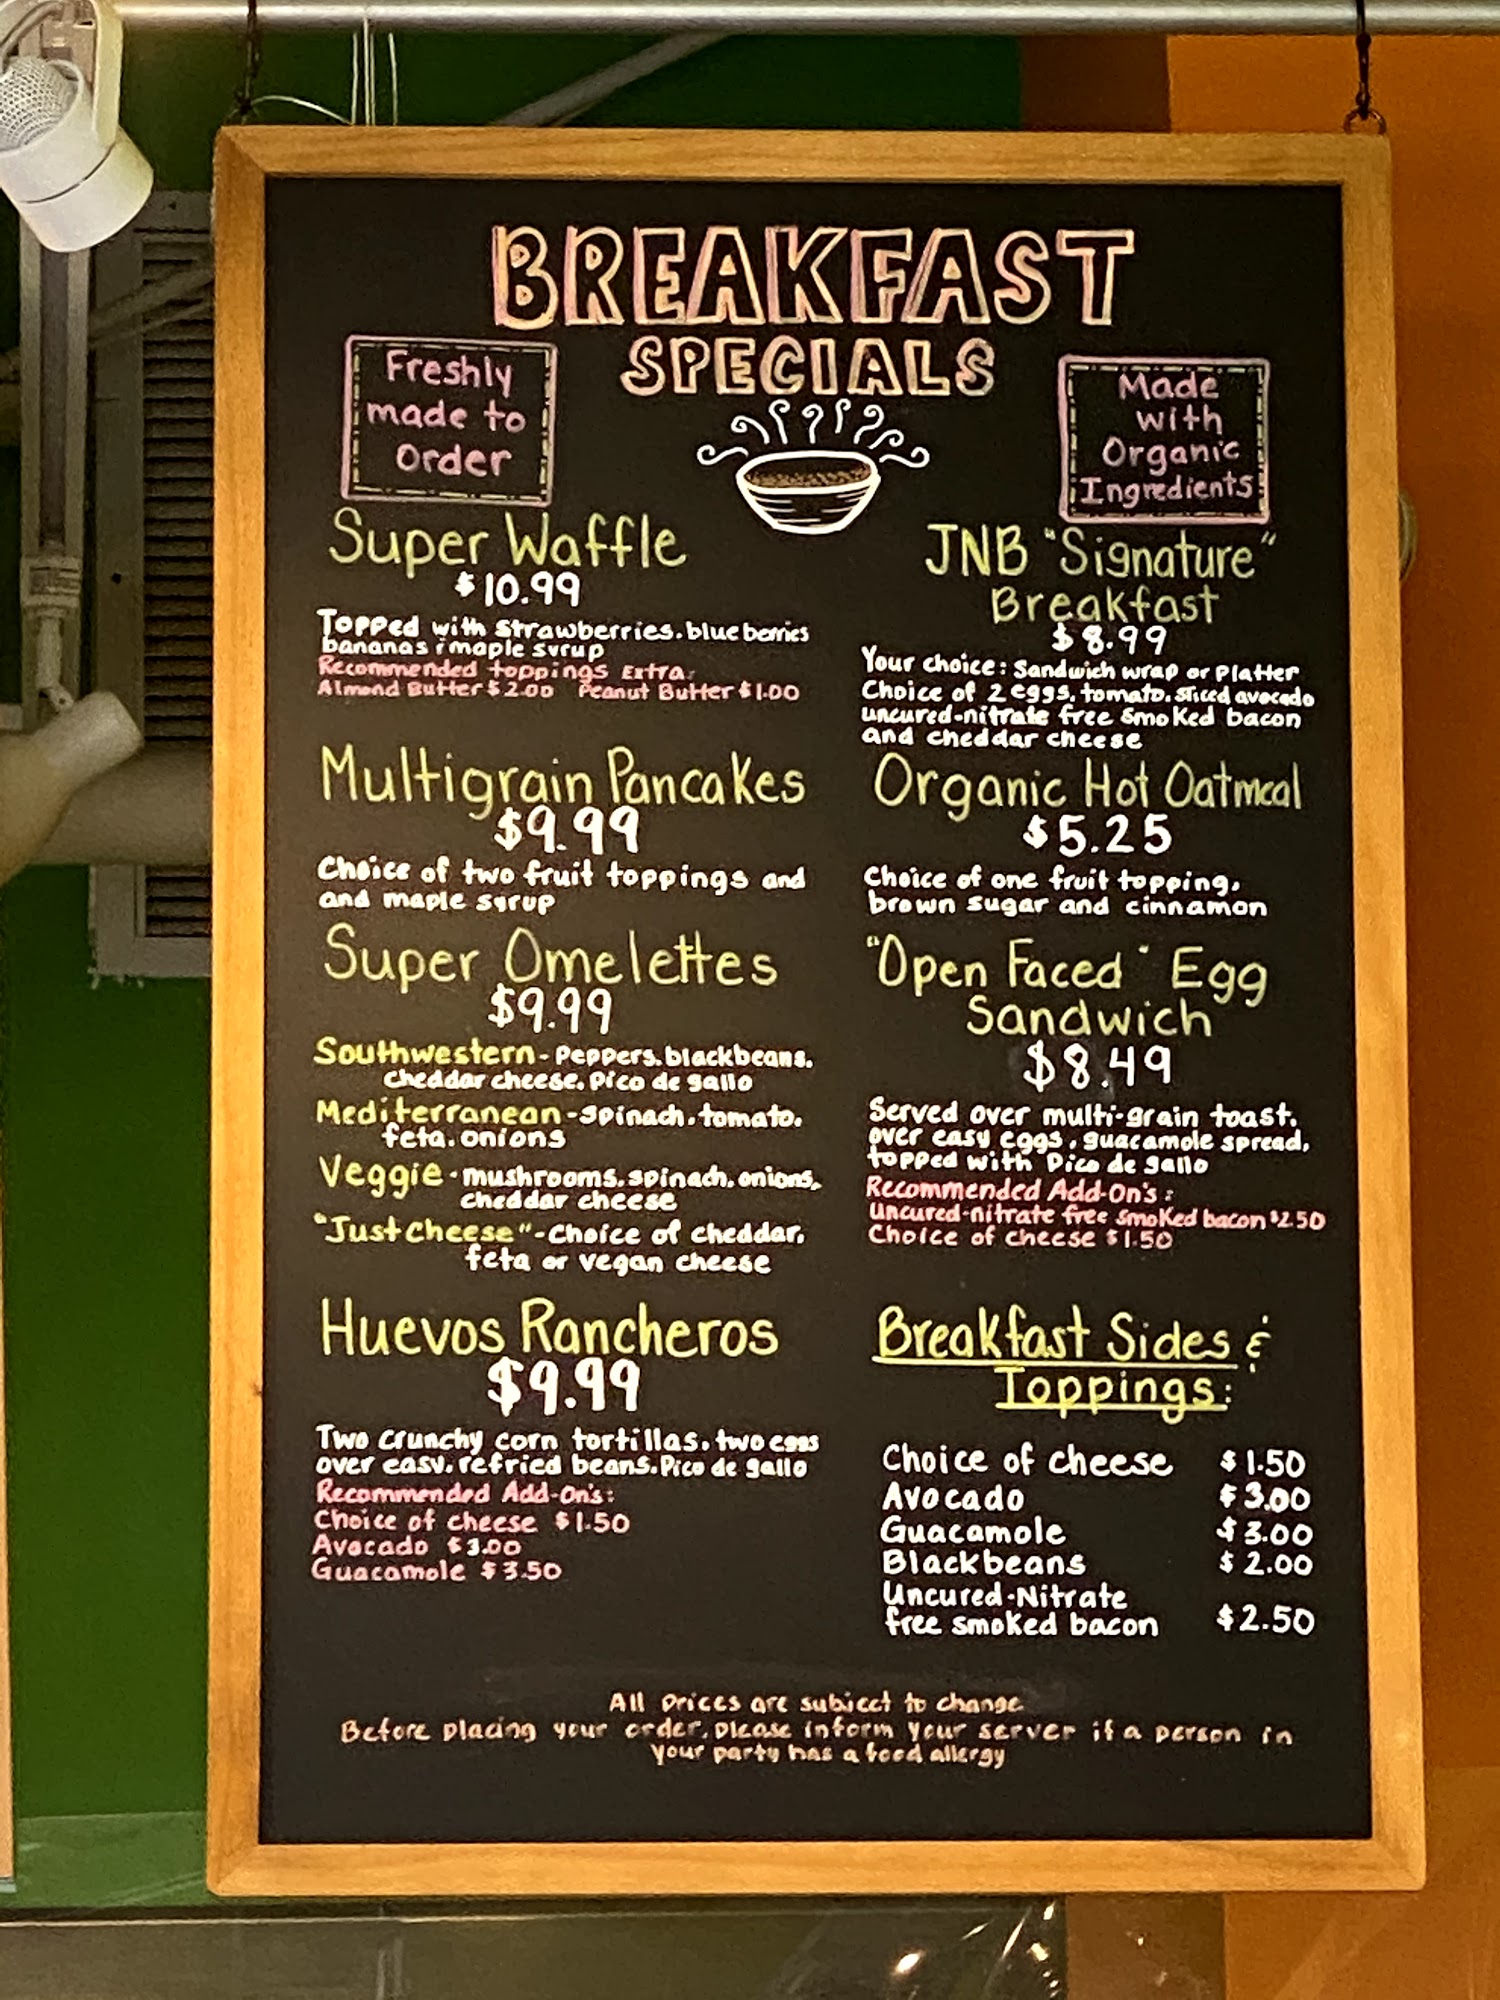 BREAKFAST
SPECIALS
Freshly
made to
Order
Made
with
Organic
Ingredients
Super Waffle
$10.99
Topped with strawberries, blueberries
bananas & maple syrup
Recommended toppings Extra:
Almond Butter $2.00 Peanut Butter $1.00
Multigrain Pancakes
$9.99
Choice of two fruit toppings and
and maple syrup
Super Omelettes
$9.99
Southwestern - Peppers, blackbeans,
cheddar cheese, Pico de gallo
Mediterranean - Spinach, tomato,
feta, onions
Veggie - mushrooms, spinach, onions,
cheddar cheese
"Just Cheese" - Choice of cheddar,
feta or vegan cheese
Huevos Rancheros
$9.99
Two crunchy corn tortillas, two eggs
over easy, refried beans, Pico de gallo
Recommended Add-On's:
Choice of cheese $1.50
Avocado $3.00
Guacamole $3.50
JNB "Signature"
Breakfast
$8.99
Your choice: Sandwich wrap or Platter
Choice of 2 eggs, tomato, sliced avocado
uncured-nitrate free smoked bacon
and cheddar cheese
Organic Hot Oatmeal
$5.25
Choice of one fruit topping,
brown sugar and cinnamon
"Open Faced" Egg
Sandwich
$8.49
Served over multi-grain toast,
over easy eggs, guacamole spread,
topped with Pico de gallo
Recommended Add-On's:
Uncured-nitrate free smoked bacon $2.50
Choice of cheese $1.50
Breakfast Sides &
Toppings:
Choice of cheese $1.50
Avocado $3.00
Guacamole $3.00
Blackbeans $2.00
Uncured-Nitrate
free smoked bacon $2.50
All prices are subject to change
Before placing your order, please inform your server if a person in
your party has a food allergy